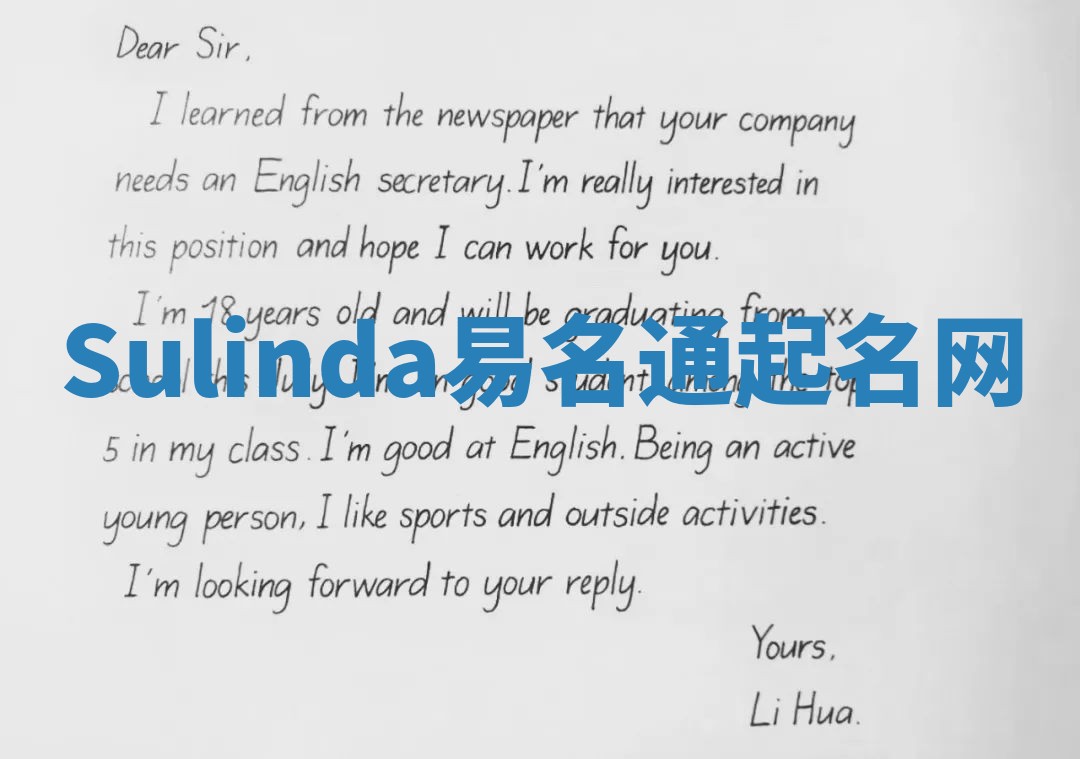 Dear Sir,
I learned from the newspaper that your company
needs an English secretary. I'm really interested in
this position and hope I can work for you.
I'm 18 years old and will be graduating from xx
Sulinda易名通起名网
school this July. I'm a good student among the top
5 in my class. I'm good at English. Being an active
young person, I like sports and outside activities.
I'm looking forward to your reply.
Yours,
Li Hua.